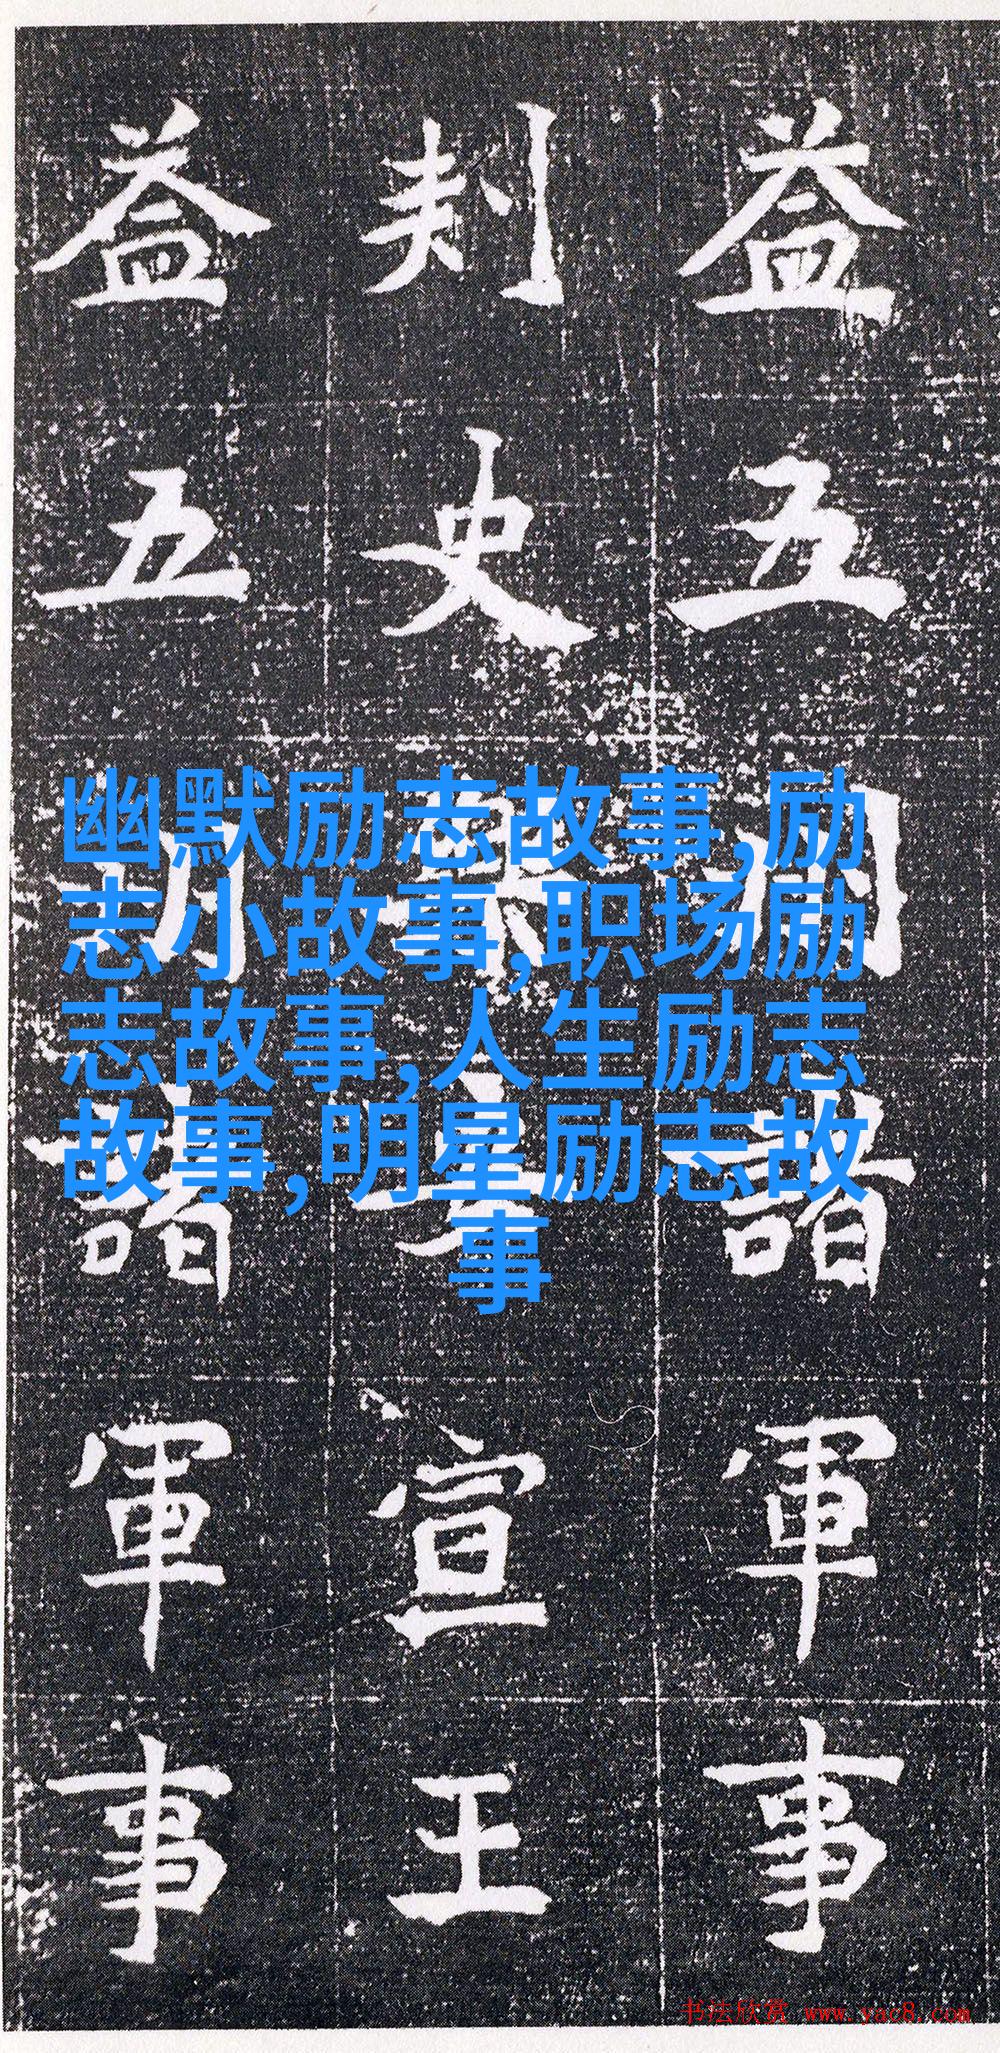 益五州諸軍事
刾史宣王
益五州諸軍事
幽默励志故事,励
志小故事,职场励
志故事,人生励志
故事,明星励志故
事
书法欣赏 www.yac8.com